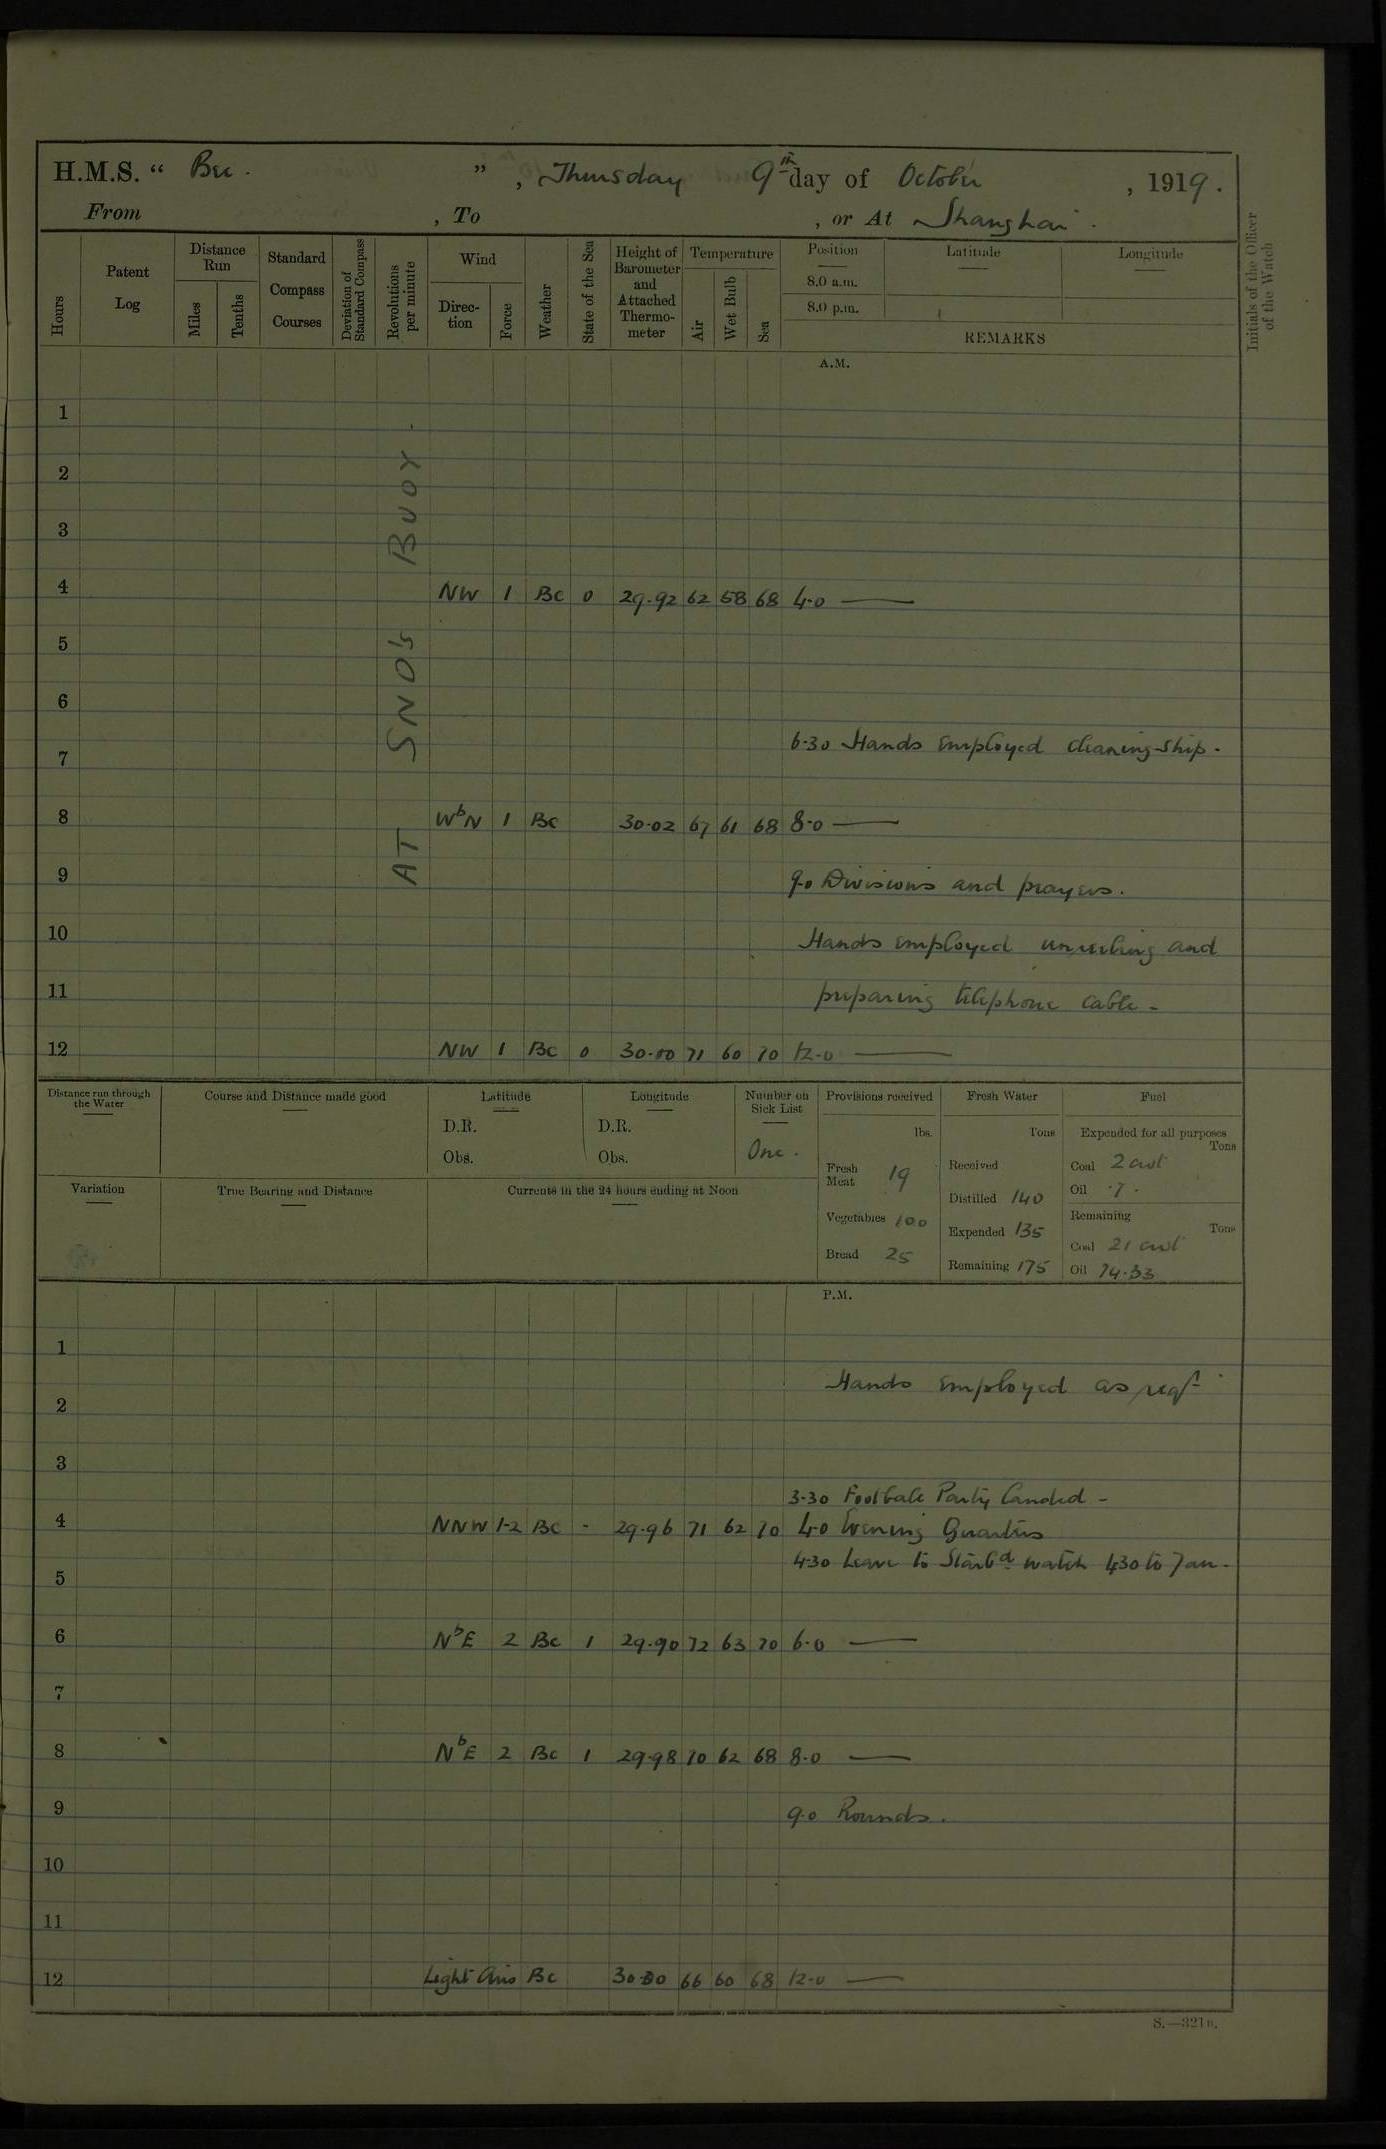 H.M.S. “ Bee. ” , Thursday 9th day of October , 1919.
From , To , or At Shanghai.
Hours
Patent Log
Distance Run
Miles
Tenths
Standard Compass Courses
Deviation of Standard Compass
Revolutions per minute
Wind
Direc- tion
Force
Weather
State of the Sea
Height of Barometer and Attached Thermo- meter
Temperature
Air
Wet Bulb
Sea
Position
8.0 a.m.
8.0 p.m.
Latitude
Longitude
REMARKS
Initials of the Officer of the Watch
A.M.
AT SNO's BUOY.
1
2
3
4 NW 1 BC 0 29.92 62 58 68 4.0 —
5
6
6.30 Hands employed cleaning ship.
7
8 WbN 1 BC 30.02 67 61 68 8.0 —
9 9.0 Divisions and prayers.
10 Hands employed unreeling and
11 preparing telephone cable -
12 NW 1 BC 0 30.00 71 60 70 12.0 —
Distance run through the Water
Course and Distance made good
Latitude
D.R.
Obs.
Longitude
D.R.
Obs.
Number on Sick List
One.
Provisions received
lbs.
Fresh Meat 19
Vegetables 100
Bread 25
Fresh Water
Tons
Received
Distilled 140
Expended 135
Remaining 175
Fuel
Expended for all purposes
Tons
Coal 2 cwt
Oil .7.
Remaining
Tons
Coal 21 cwt
Oil 74.33
Variation
True Bearing and Distance
Currents in the 24 hours ending at Noon
P.M.
1
Hands employed as reqd
2
3
3.30 Football Party landed -
4 NNW 1-2 BC - 29.96 71 62 70 4.0 Evening Quarters
4.30 Leave to Starbd watch 430 to 7am.
5
6 NbE 2 BC 1 29.90 72 63 70 6.0 —
7
8 NbE 2 BC 1 29.98 70 62 68 8.0 —
9 9.0 Rounds.
10
11
12 Light Airs BC 30.00 66 60 68 12.0 —
S.—321 B.